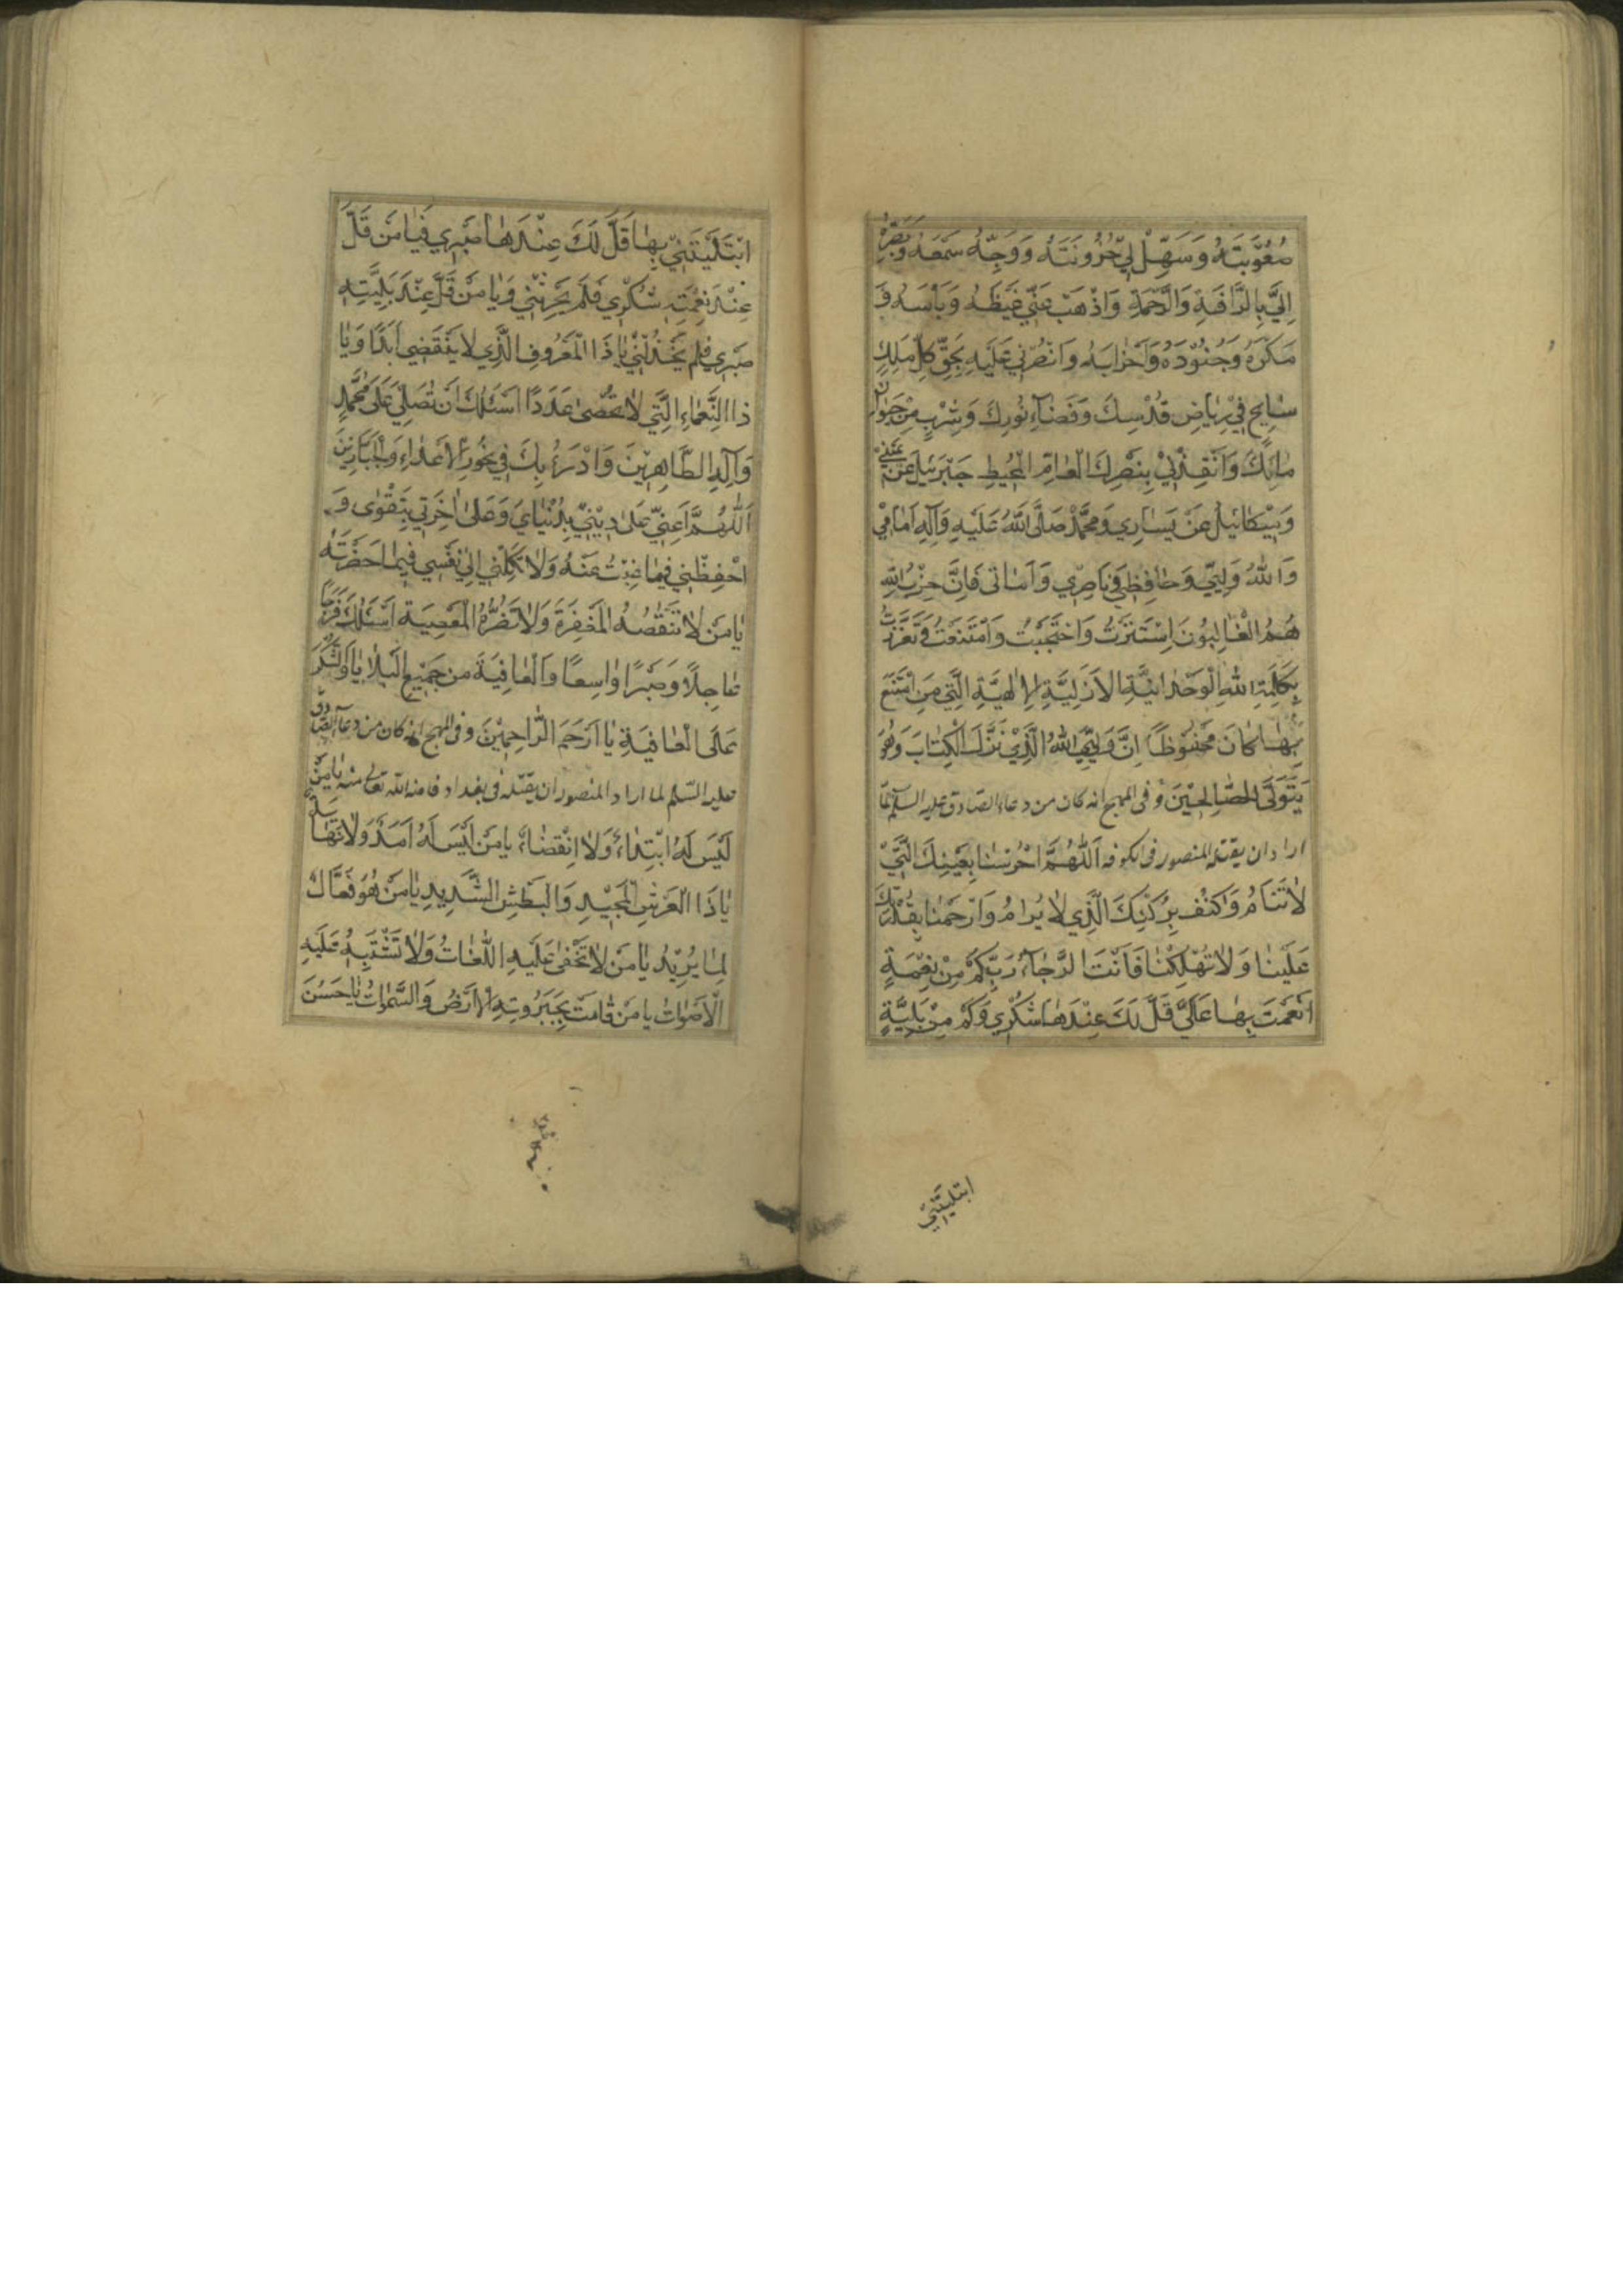 صُعُوبَتَهُ وَسَهِّلْ لِي حُزُونَتَهُ وَوَجِّهْ سَمْعَهُ وَبَصَرَهُ
اِلَيَّ بِالرَّافَةِ وَالرَّحْمَةِ وَاذْهَبْ عَنِّي غَيْظَهُ وَبَأْسَهُ وَ
مَكْرَهُ وَجُنُودَهُ وَاَحْزابَهُ وَانْصُرْنِي عَلَيْهِ بِحَقِّ كُلِّ مَلَكٍ
سٰايِحٍ فِي رِيٰاضِ قُدْسِكَ وَفَضٰآءِ نُورِكَ وَشَرِبَ مِنْ حَيَوٰانِ
مٰائِكَ وَاَنْقِذْنِي بِنَصْرِكَ الْعٰامِّ الْمُحيطِ جَبْرَئيلُ عَنْ يَمِيني
وَمِيْكٰائيلُ عَنْ يَسٰارِي وَمُحَمَّدٌ صَلَّى اللّٰهُ عَلَيْهِ وَآلِهِ اَمٰامِيْ
وَاللّٰهُ وَلِيِّي وَحٰافِظِي وَنٰاصِرِي وَاَمٰانی فَاِنَّ حِزْبَ اللّٰهِ
هُمُ الْغٰالِبُونَ اِسْتَتَرْتُ وَاحْتَجَبْتُ وَامْتَنَعْتُ وَتَعَزَّزْتُ
بِكَلِمَةِ اللّٰهِ الْوَحْدٰانِيَّةِ الْاَزَلِيَّةِ الْاِلٰهِيَّةِ الَّتِي مَنِ امْتَنَعَ
بِهٰا كٰانَ مَحْفُوظًا اِنَّ وَلِيِّيَ اللّٰهُ الَّذِيْ نَزَّلَ الْكِتٰابَ وَهُوَ
يَتَوَلَّى الصّٰالِحْيْنَ وفی المهج انه كان من دعاء الصّادق عليه السلم لمّا
اراد ان يقتله المنصور فی الكوفه اَللّٰهُمَّ احْرُسْنٰا بِعَيْنِكَ الَّتِيْ
لٰا تَنٰامُ وَاكْنُفْ بِرُكْنِكَ الَّذِي لٰا يُرٰامُ وَارْحَمْنٰا بِقُدْرَتِكَ
عَلَيْنٰا وَلٰا تُهْلِكْنٰا فَاَنْتَ الرَّجٰآءُ رَبِّ كَمْ مِنْ نِعْمَةٍ
اَنْعَمْتَ بِهٰا عَلَيَّ قَلَّ لَكَ عِنْدَهٰا شُكْرِي وَكَمْ مِنْ بَلِيَّةٍ
ابتليتني
ابْتَلَيْتَنِي بِهٰا قَلَّ لَكَ عِنْدَهٰا صَبْرِي فَيٰا مَنْ قَلَّ
عِنْدَ نِعْمَتِهِ شُكْرِي فَلَمْ يَحْرِمْنِي وَيٰا مَنْ قَلَّ عِنْدَ بَلِيَّتِهِ
صَبْرِي فَلَمْ يَخْذُلْنِي يٰا ذَا الْمَعْرُوفِ الَّذِي لٰا يَنْقَضِي اَبَدًا وَيٰا
ذَا النَّعْمٰاءِ الَّتِي لٰا تُحْصٰى عَدَدًا اَسْئَلُكَ اَنْ تُصَلِّيَ عَلٰى مُحَمَّدٍ
وَآلِهِ الطَّاهِرِيْنَ وَادْرَءُ بِكَ فِي نُحُورِ الْاَعْدٰاءِ وَالْجَبّٰارِينَ
اَللّٰهُمَّ اَعِنِّي عَلٰى دِيْنِيْ بِدُنْيٰايَ وَعَلٰى اٰخِرَتِي بِتَقْوٰى وَ
احْفِظْنِي فِيمٰا غِبْتُ عَنْهُ وَلٰا تَكِلْنِي اِلٰى نَفْسِي فِيمٰا حَضَرْتُهُ
يٰا مَنْ لٰا تَنْقُصُهُ الْمَغْفِرَةُ وَلٰا تَضُرُّهُ الْمَعْصِيَةُ اَسْئَلُكَ فَرَجًا
عٰاجِلًا وَصَبْرًا وٰاسِعًا وَالْعٰافِيَةَ مِنْ جَمِيْعِ الْبَلٰايٰا وَالشُّكْرَ
عَلَى الْعٰافِيَةِ يٰا اَرْحَمَ الرّٰاحِمِيْنَ وفی المهج انه كان من دعآء الصّادق
عليه السّلم لما اراد المنصور ان يقتله فی بغداد فامنه الله تعالى منه يٰا مَنْ
لَيْسَ لَهُ ابْتِدٰاءٌ وَلٰا انْقِضٰاءٌ يٰا مَنْ لَيْسَ لَهُ اَمَدٌ وَلٰا نِهٰايَةٌ
يٰا ذَا الْعَرْشِ الْمَجِيْدِ وَالْبَطْشِ الشَّدِيدِ يٰا مَنْ هُوَ فَعَّالٌ
لِمٰا يُرِيْدُ يٰا مَنْ لٰا تَخْفٰى عَلَيْهِ اللُّغٰاتُ وَلٰا تَشْتَبِهُ عَلَيْهِ
الْاَصْوٰاتُ يٰا مَنْ قٰامَتْ بِجَبَرُوتِهِ الْاَرْضُ وَالسَّمٰوٰاتُ يٰا حَسَنَ